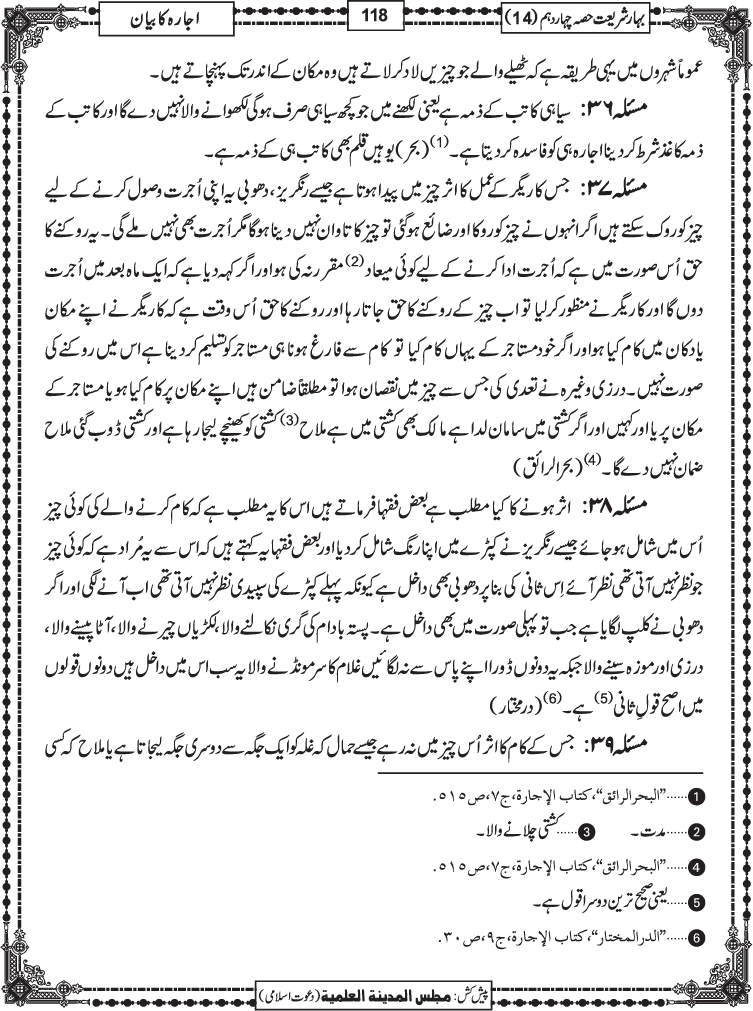 بہارِ شریعت حصہ چہاردہم (14)
118
اجارہ کا بیان
عموماً شہروں میں یہی طریقہ ہے کہ ٹھیلے والے جو چیزیں لاد کر لاتے ہیں وہ مکان کے اندر تک پہنچاتے ہیں۔
مسئلہ ۳۶: سیاہی کاتب کے ذمہ ہے یعنی لکھنے میں جو کچھ سیاہی صرف ہوگی لکھوانے والا نہیں دے گا اور کاتب کے
ذمہ کاغذ شرط کر دینا اجارہ ہی کو فاسد کر دیتا ہے۔(1) (بحر) یوہیں قلم بھی کاتب ہی کے ذمہ ہے۔
مسئلہ ۳۷: جس کاریگر کے عمل کا اثر چیز میں پیدا ہوتا ہے جیسے رنگریز، دھوبی یہ اپنی اُجرت وصول کرنے کے لیے
چیز کو روک سکتے ہیں اگر انہوں نے چیز کو روکا اور ضائع ہوگئی تو چیز کا تاوان نہیں دینا ہوگا مگر اُجرت بھی نہیں ملے گی۔ یہ روکنے کا
حق اُس صورت میں ہے کہ اُجرت ادا کرنے کے لیے کوئی میعاد(2) مقرر نہ کی ہو اور اگر کہہ دیا ہے کہ ایک ماہ بعد میں اُجرت
دوں گا اور کاریگر نے منظور کر لیا تو اب چیز کے روکنے کا حق جاتا رہا اور روکنے کا حق اُس وقت ہے کہ کاریگر نے اپنے مکان
یا دکان میں کام کیا ہو اور اگر خود مستاجر کے یہاں کام کیا تو کام سے فارغ ہونا ہی مستاجر کو تسلیم کر دینا ہے اس میں روکنے کی
صورت نہیں۔ درزی وغیرہ نے تعدی کی جس سے چیز میں نقصان ہوا تو مطلقاً ضامن ہیں اپنے مکان پر کام کیا ہو یا مستاجر کے
مکان پر یا اور کہیں اور اگر کشتی میں سامان لدا ہے مالک بھی کشتی میں ہے ملاح(3) کشتی کو کھینچے لیجا رہا ہے اور کشتی ڈوب گئی ملاح
ضمان نہیں دے گا۔(4) (بحرالرائق)
مسئلہ ۳۸: اثر ہونے کا کیا مطلب ہے بعض فقہا فرماتے ہیں اس کا یہ مطلب ہے کہ کام کرنے والے کی کوئی چیز
اُس میں شامل ہو جائے جیسے رنگریز نے کپڑے میں اپنا رنگ شامل کر دیا اور بعض فقہا یہ کہتے ہیں کہ اس سے یہ مُراد ہے کہ کوئی چیز
جو نظر نہیں آتی تھی نظر آئے اِس ثانی کی بنا پر دھوبی بھی داخل ہے کیونکہ پہلے کپڑے کی سپیدی نظر نہیں آتی تھی اب آنے لگی اور اگر
دھوبی نے کلپ لگایا ہے جب تو پہلی صورت میں بھی داخل ہے۔ پستہ بادام کی گری نکالنے والا، لکڑیاں چیرنے والا، آٹا پیسنے والا،
درزی اور موزہ سینے والا جبکہ یہ دونوں ڈورا اپنے پاس سے نہ لگائیں غلام کا سر مونڈنے والا یہ سب اس میں داخل ہیں دونوں قولوں
میں اصح قولِ ثانی(5) ہے۔(6) (درمختار)
مسئلہ ۳۹: جس کے کام کا اثر اُس چیز میں نہ رہے جیسے حمال کہ غلہ کو ایک جگہ سے دوسری جگہ لیجاتا ہے یا ملاح کہ کسی
1 ......"البحرالرائق"، کتاب الإجارۃ، ج۷، ص۵۱۵.
2 ......مدت۔ 3 ......کشتی چلانے والا۔
4 ......"البحرالرائق"، کتاب الإجارۃ، ج۷، ص۵۱۵.
5 ......یعنی صحیح ترین دوسرا قول ہے۔
6 ......"الدرالمختار"، کتاب الإجارۃ، ج۹، ص۳۰.
پیش کش: مجلس المدینۃ العلمیۃ (دعوت اسلامی)